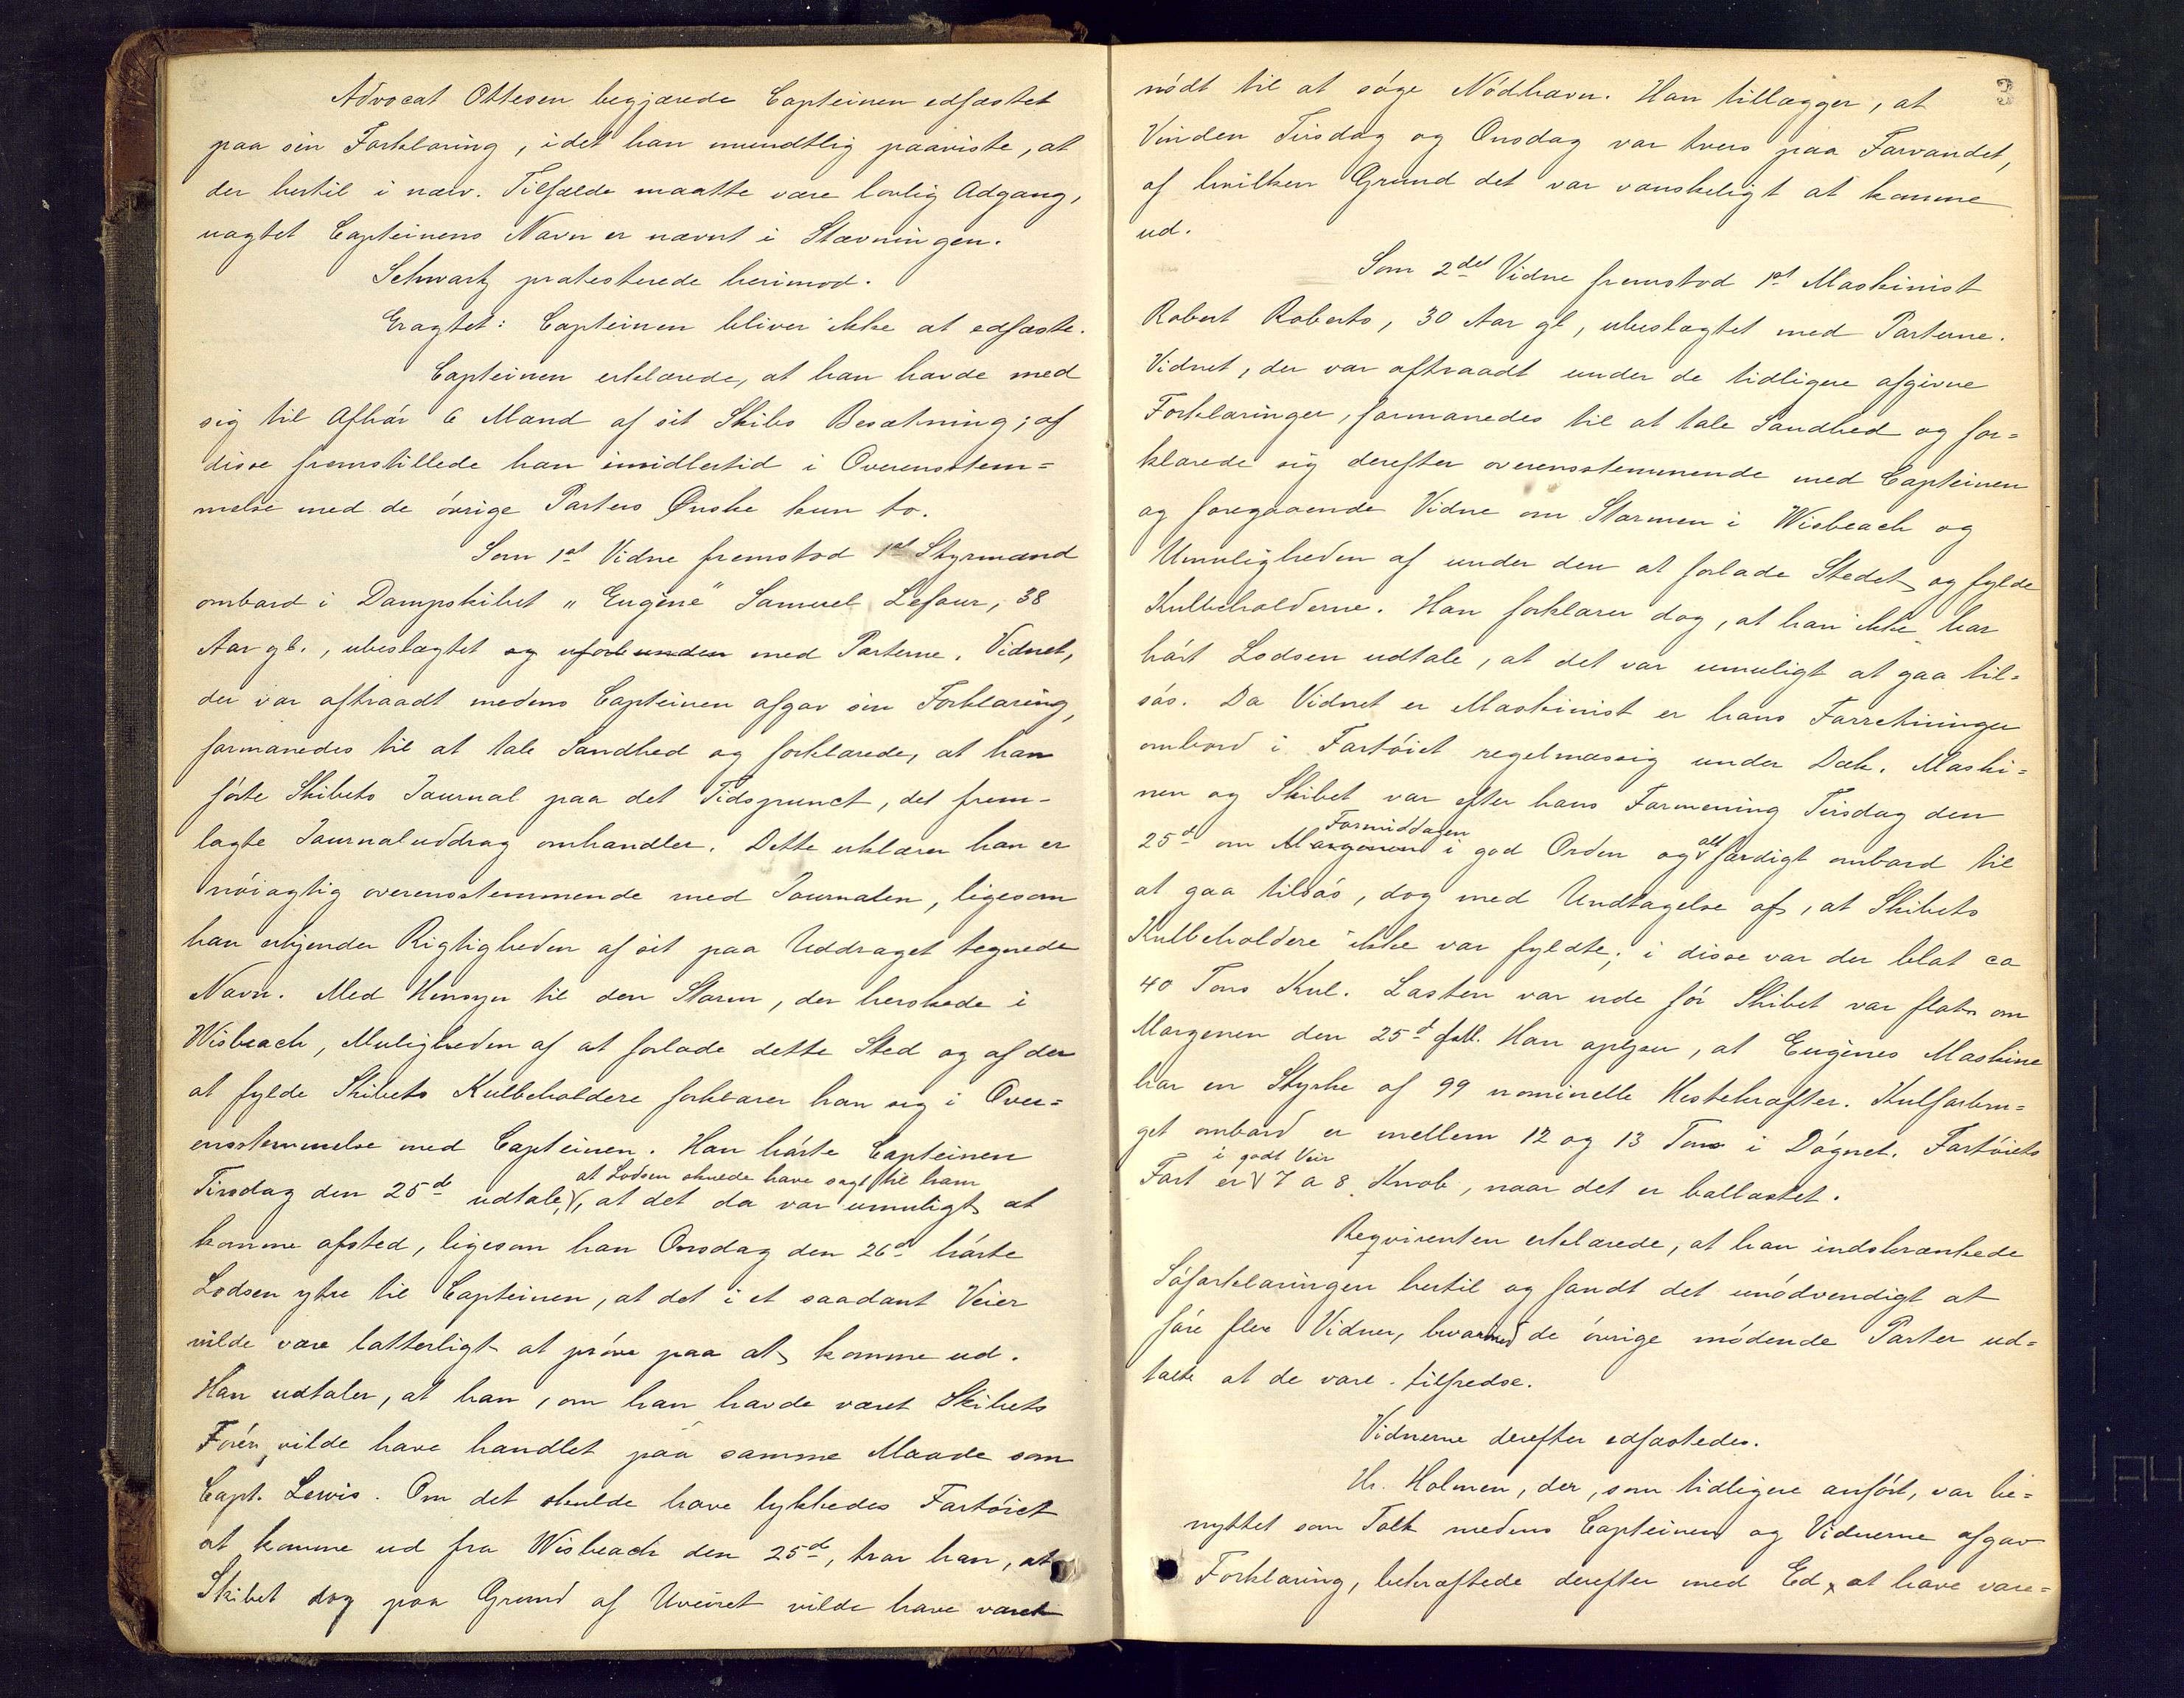 Advocat Ottesen begjærede Capteinen edfæstet
paa sin Forklaring, idet han mundtlig paaviste, at
der hertil i nærv. Tilfælde maatte være lovlig Adgang,
uagtet Capteinens Navn er nævnt i Stævningen.
Schwartz protesterede herimod.
Eragtet: Capteinen bliver ikke at edfæste.
Capteinen erklærede, at han havde med
sig til Afhör 6 Mand af sit Skibs Besætning; af
disse fremstillede han imidlertid i Overensstem=
melse med de övrige Parters Ønske kun to.
Som 1st Vidne fremstod 1st Styrmand
ombord i Dampskibet "Eugène" Samuel Lefour, 38
Aar gl., ubeslægtet og uforbunden med Parterne. Vidnet,
der var aftraadt medens Capteinen afgav sin Forklaring,
formanedes til at tale Sandhed og forklarede, at han
förte Skibets Journal paa det Tidspunct, det frem-
lagte Journaluddrag omhandler. Dette erklærer han er
nöiagtig overensstemmende med Journalen, ligesom
han erkjender Rigtigheden af sit paa Uddraget tegnede
Navn. Med Hensyn til den Storm, der herskede i
Wisbeach, Muligheden af at forlade dette Sted og af der
at fylde Skibets Kulbeholdere forklarer han sig i Over=
ensstemmelse med Capteinen. Han hörte Capteinen
at Lodsen skulde have sagt til ham
Tirsdag den 25de udtale, at det da var umuligt at
komme afsted, ligesom han Onsdag den 26de hörte
Lodsen ytre til Capteinen, at det i et saadant Veier
vilde være latterligt at pröve paa at komme ud.
Han udtaler, at han, om han havde været Skibets
Förer, vilde have handlet paa samme Maade som
Capt. Lewis. Om det skulde have lykkedes Fartöiet
at komme ud fra Wisbeach den 25de, tror han, at
Skibet dog paa Grund af Uveiret vilde have været
nödt til at söge Nödhavn. Han tillægger, at
Vinden Tirsdag og Onsdag var tvers paa Farvandet,
af hvilken Grund det var vanskeligt at komme
ud.
Som 2det Vidne fremstod 1st Maskinist
Robert Roberts, 30 Aar gl, ubeslægtet med Parterne.
Vidnet, der var aftraadt under de tidligere afgivne
Forklaringer, formanedes til at tale Sandhed og for=
klarede sig derefter overensstemmende med Capteinen
og foregaaende Vidne om Stormen i Wisbeach og
Umuligheden af under den at forlade Stedet og fylde
Kulbeholderne. Han forklarer dog, at han ikke har
hört Lodsen udtale, at det var umuligt at gaa til=
sös. Da Vidnet er Maskinist er hans Forretninger
ombord i Fartöiet regelmæssig under Dæk. Maski=
nen og Skibet var efter hans Formening Tirsdag den
Formiddagen alt
25d om Morgenen i god Orden og færdigt ombord til
at gaa tilsös, dog med Undtagelse af, at Skibets
Kulbeholdere ikke var fyldte; i disse var der blot ca
40 Tons Kul. Lasten var ude för Skibet var flot om
Morgenen den 25d. Han oplyser, at Eugènes Maskine
har en Styrke af 99 nominelle Hestekræfter. Kulforbru=
get ombord er mellem 12 og 13 Tons i Dögnet. Fartöiets
i godt Veir
Fart er 7 a 8 Knob, naar det er ballastet.
Reqvirenten erklærede, at han indskrænkede
Söforklaringen hertil og fandt det unödvendigt at
före flere Vidner, hvormed de övrige mödende Parter ud=
talte at de vare tilfredse.
Vidnerne derefter edfæstedes.
Hr. Holmen, der, som tidligere anfört, var be=
nyttet som Tolk medens Capteinen og Vidnerne afgav
Forklaring, bekræftede derefter med Ed at have vare=